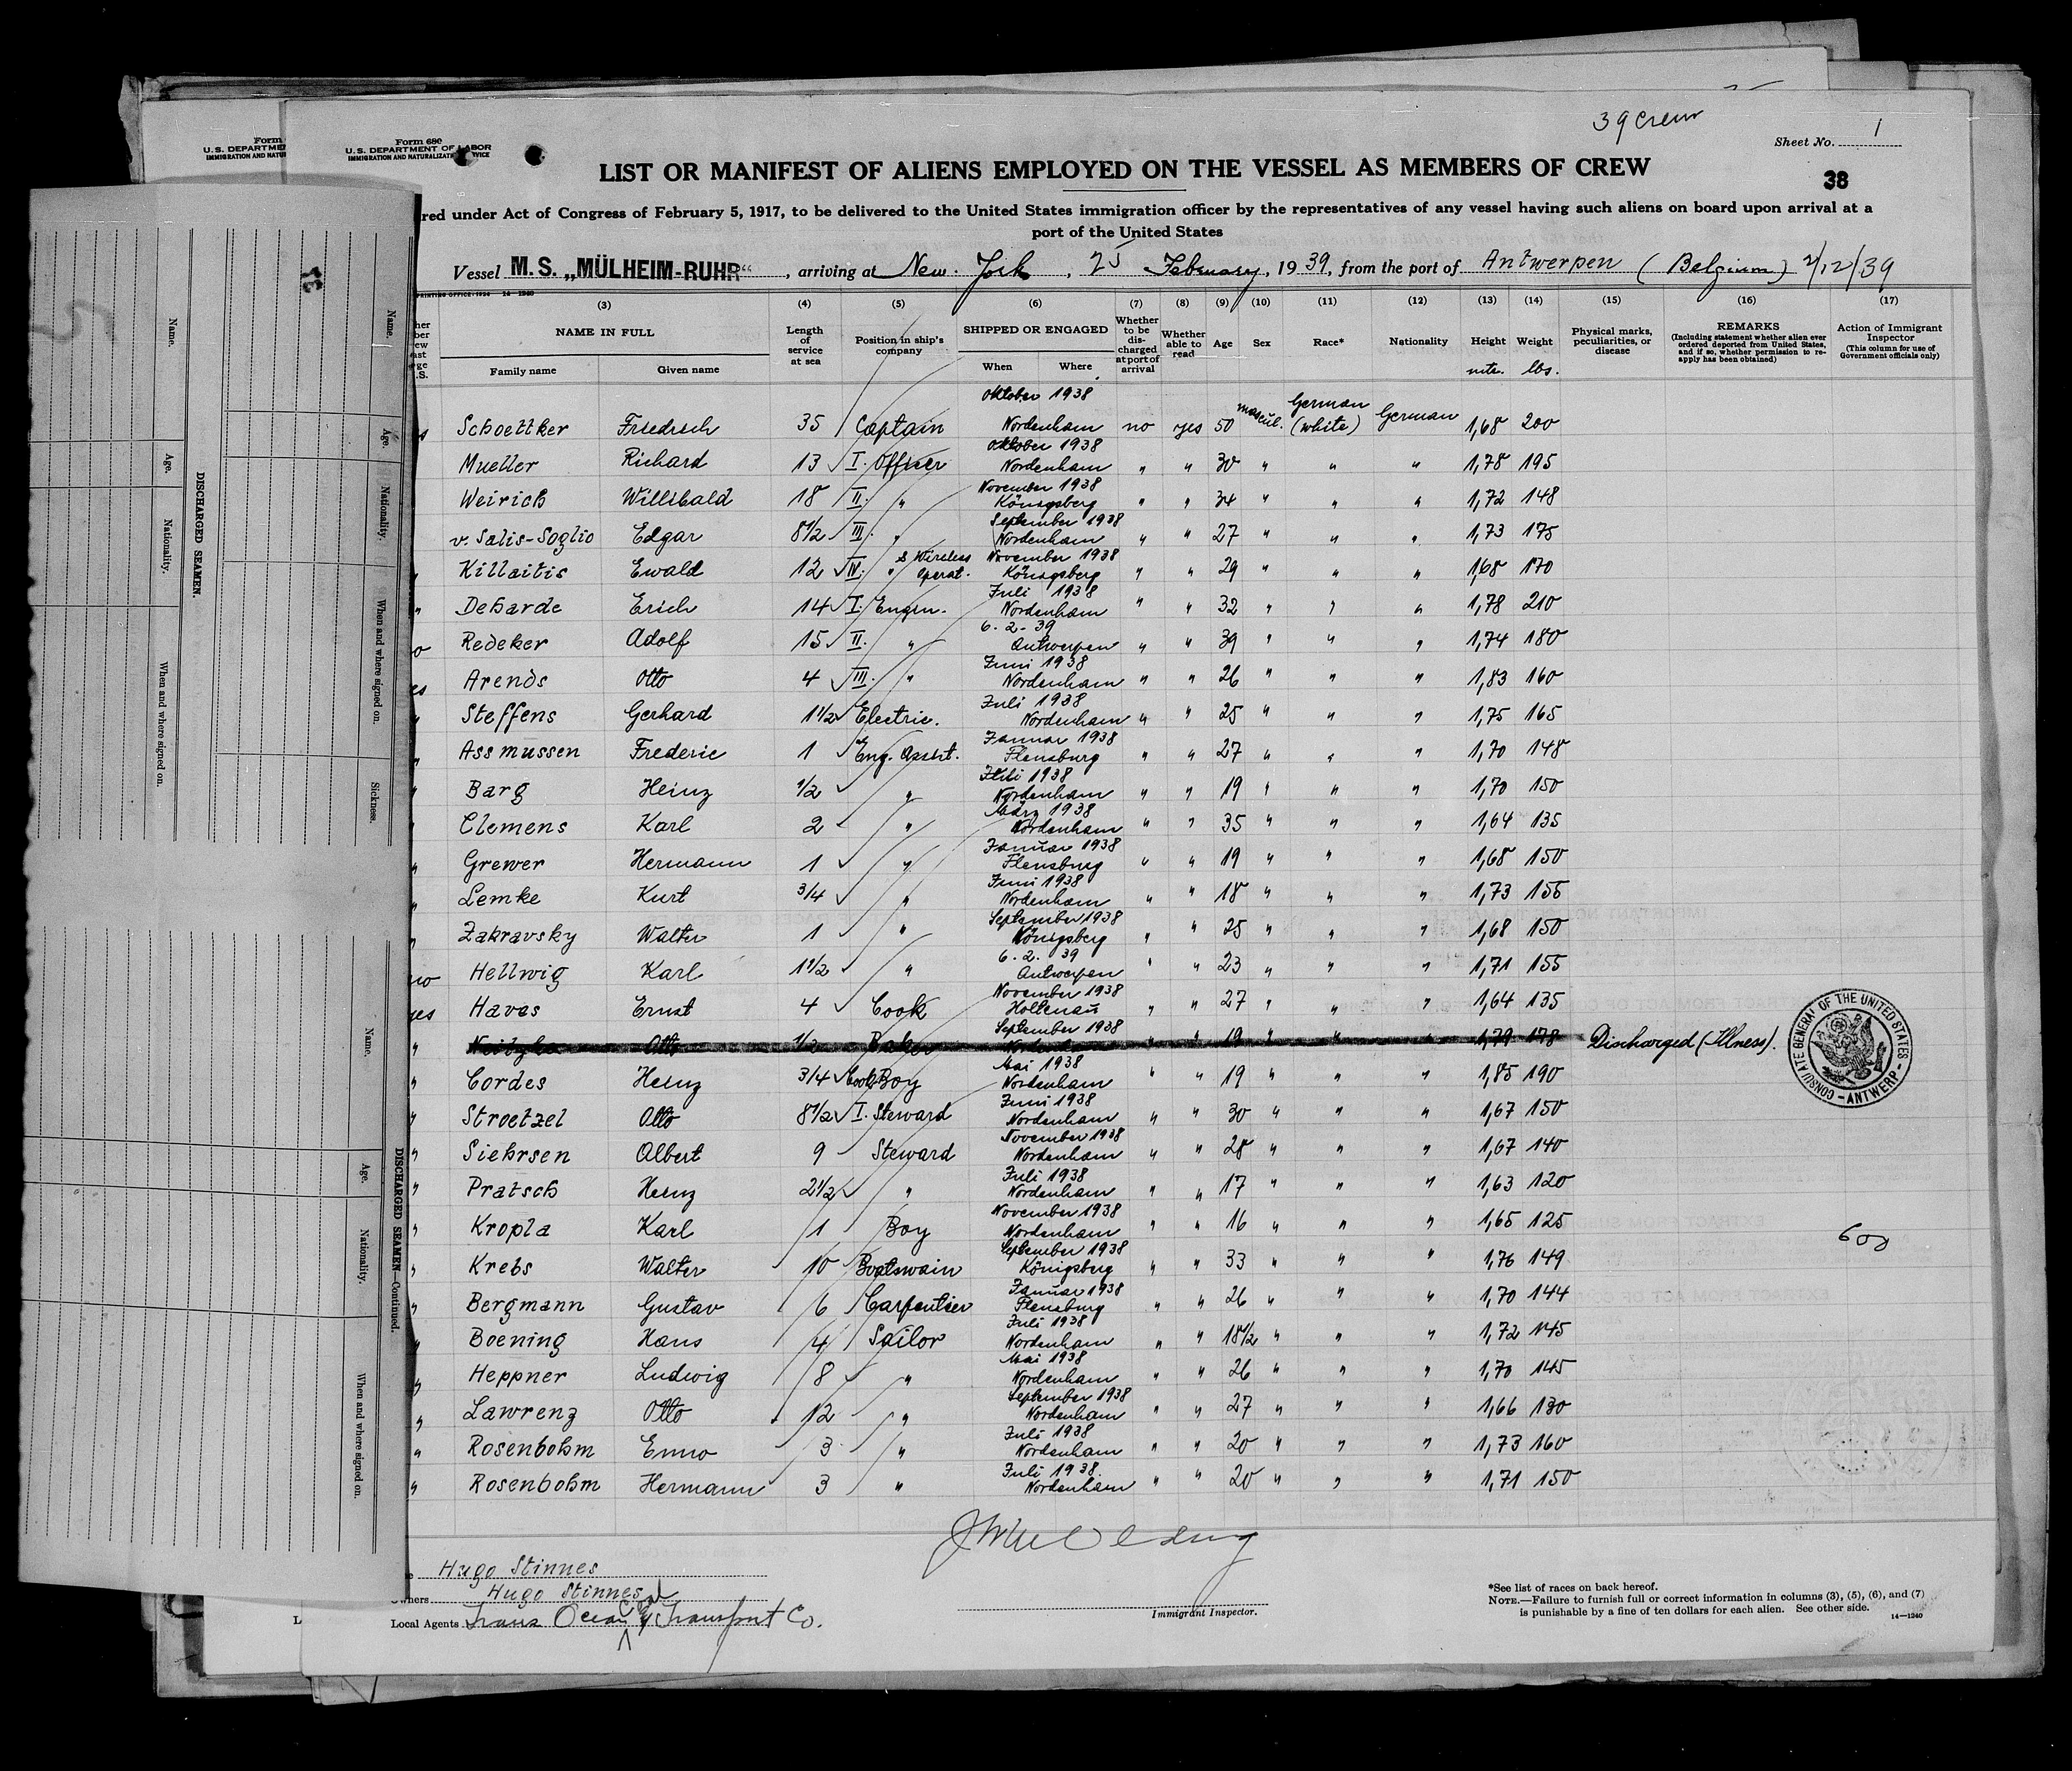 39 Crew
Form 680
U.S. DEPARTMENT OF LABOR
IMMIGRATION AND NATURALIZATION SERVICE
Sheet No. 1
LIST OR MANIFEST OF ALIENS EMPLOYED ON THE VESSEL AS MEMBERS OF CREW
38
red under Act of Congress of February 5, 1917, to be delivered to the United States immigration officer by the representatives of any vessel having such aliens on board upon arrival at a
port of the United States
Vessel M.S. „MÜLHEIM-RUHR“, arriving at New York, 25 February, 1939, from the port of Antwerpen (Belgium) 2/12/39
(3) (4) (5) (6) (7) (8) (9) (10) (11) (12) (13) (14) (15) (16) (17)
NAME IN FULL Length of service at sea Position in ship's company SHIPPED OR ENGAGED Whether to be discharged at port of arrival Whether able to read Age Sex Race* Nationality Height Weight Physical marks, peculiarities, or disease REMARKS (Including statement whether alien ever ordered deported from United States, and if so, whether permission to reapply has been obtained) Action of Immigrant Inspector (This column for use of Government officials only)
Family name Given name When Where mtr. lbs.
Oktober 1938
Schoettker Friedrich 35 Captain Nordenham no yes 50 mascul. German (white) German 1,68 200
Oktober 1938
Mueller Richard 13 I. Officer Nordenham " " 30 " " " 1,78 195
November 1938
Weirich Willibald 18 II. " Königsberg " " 34 " " " 1,72 148
September 1938
v. Salis-Soglio Edgar 8 1/2 III. " Nordenham " " 27 " " " 1,73 175
November 1938
Killaitis Ewald 12 IV. " & Wireless Operat. Königsberg " " 29 " " " 1,68 170
Juli 1938
" Deharde Erich 14 I. Engin. Nordenham " " 32 " " " 1,78 210
6. 2. 39
Redeker Adolf 15 II. " Antwerpen " " 39 " " " 1,74 180
Juni 1938
Arends Otto 4 III. " Nordenham " " 26 " " " 1,83 160
Juli 1938
" Steffens Gerhard 1 1/2 Electric. Nordenham " " 25 " " " 1,75 165
Januar 1938
" Assmussen Frederic 1 Eng. Assist. Flensburg " " 27 " " " 1,70 148
Juli 1938
" Barg Heinz 1/2 " Nordenham " " 19 " " " 1,70 150
März 1938
Clemens Karl 2 " Nordenham " " 35 " " " 1,64 135
Januar 1938
" Grewer Hermann 1 " Flensburg " " 19 " " " 1,68 150
Juni 1938
" Lemke Kurt 3/4 " Nordenham " " 18 " " " 1,73 155
September 1938
" Zakravsky Walter 1 " Königsberg " " 25 " " " 1,68 150
6. 2. 39
no Hellwig Karl 1 1/2 " Antwerpen " " 23 " " " 1,71 155
November 1938
yes Haves Ernst 4 Cook Holtenau " " 27 " " " 1,64 135
September 1938
" Otto 1/2 Baker Nordenham " " 19 " " " 1,79 178 Discharged (Illness).
Mai 1938
" Cordes Heinz 3/4 Cook Boy Nordenham " " 19 " " " 1,85 190
Juni 1938
" Stroetzel Otto 8 1/2 I. Steward Nordenham " " 30 " " " 1,67 150
November 1938
" Siehrsen Albert 9 Steward Nordenham " " 28 " " " 1,67 140
Juli 1938
" Pratsch Heinz 2 1/2 " Nordenham " " 17 " " " 1,63 120
November 1938
" Kropla Karl 1 Boy Nordenham " " 16 " " " 1,65 125
September 1938
" Krebs Walter 10 Boatswain Königsberg " " 33 " " " 1,76 149
Januar 1938
" Bergmann Gustav 6 Carpentier Flensburg " " 26 " " " 1,70 144
Juli 1938
" Boening Hans 4 Sailor Nordenham " " 18 1/2 " " " 1,72 145
Mai 1938
" Heppner Ludwig 8 " Nordenham " " 26 " " " 1,70 145
September 1938
" Lawrenz Otto 12 " Nordenham " " 27 " " " 1,66 130
Juli 1938
" Rosenbohm Enno 3 " Nordenham " " 20 " " " 1,73 160
Juli 1938
" Rosenbohm Hermann 3 " Nordenham " " 20 " " " 1,71 150
CONSULATE GENERAL OF THE UNITED STATES - ANTWERP -
Hugo Stinnes
Owners Hugo Stinnes
Local Agents Trans Ocean Coal & Transport Co.
Immigrant Inspector.
*See list of races on back hereof.
NOTE.—Failure to furnish full or correct information in columns (3), (5), (6), and (7)
is punishable by a fine of ten dollars for each alien. See other side.
14—1240
Form
U.S. DEPARTME
IMMIGRATION AND NAT
31
Name. Age. Nationality. When and where signed on. Sickness.
DISCHARGED SEAMEN.
Name. Age. Nationality. When and where signed on.
DISCHARGED SEAMEN—Continued.
Name. Age. Nationality. When and where signed on.